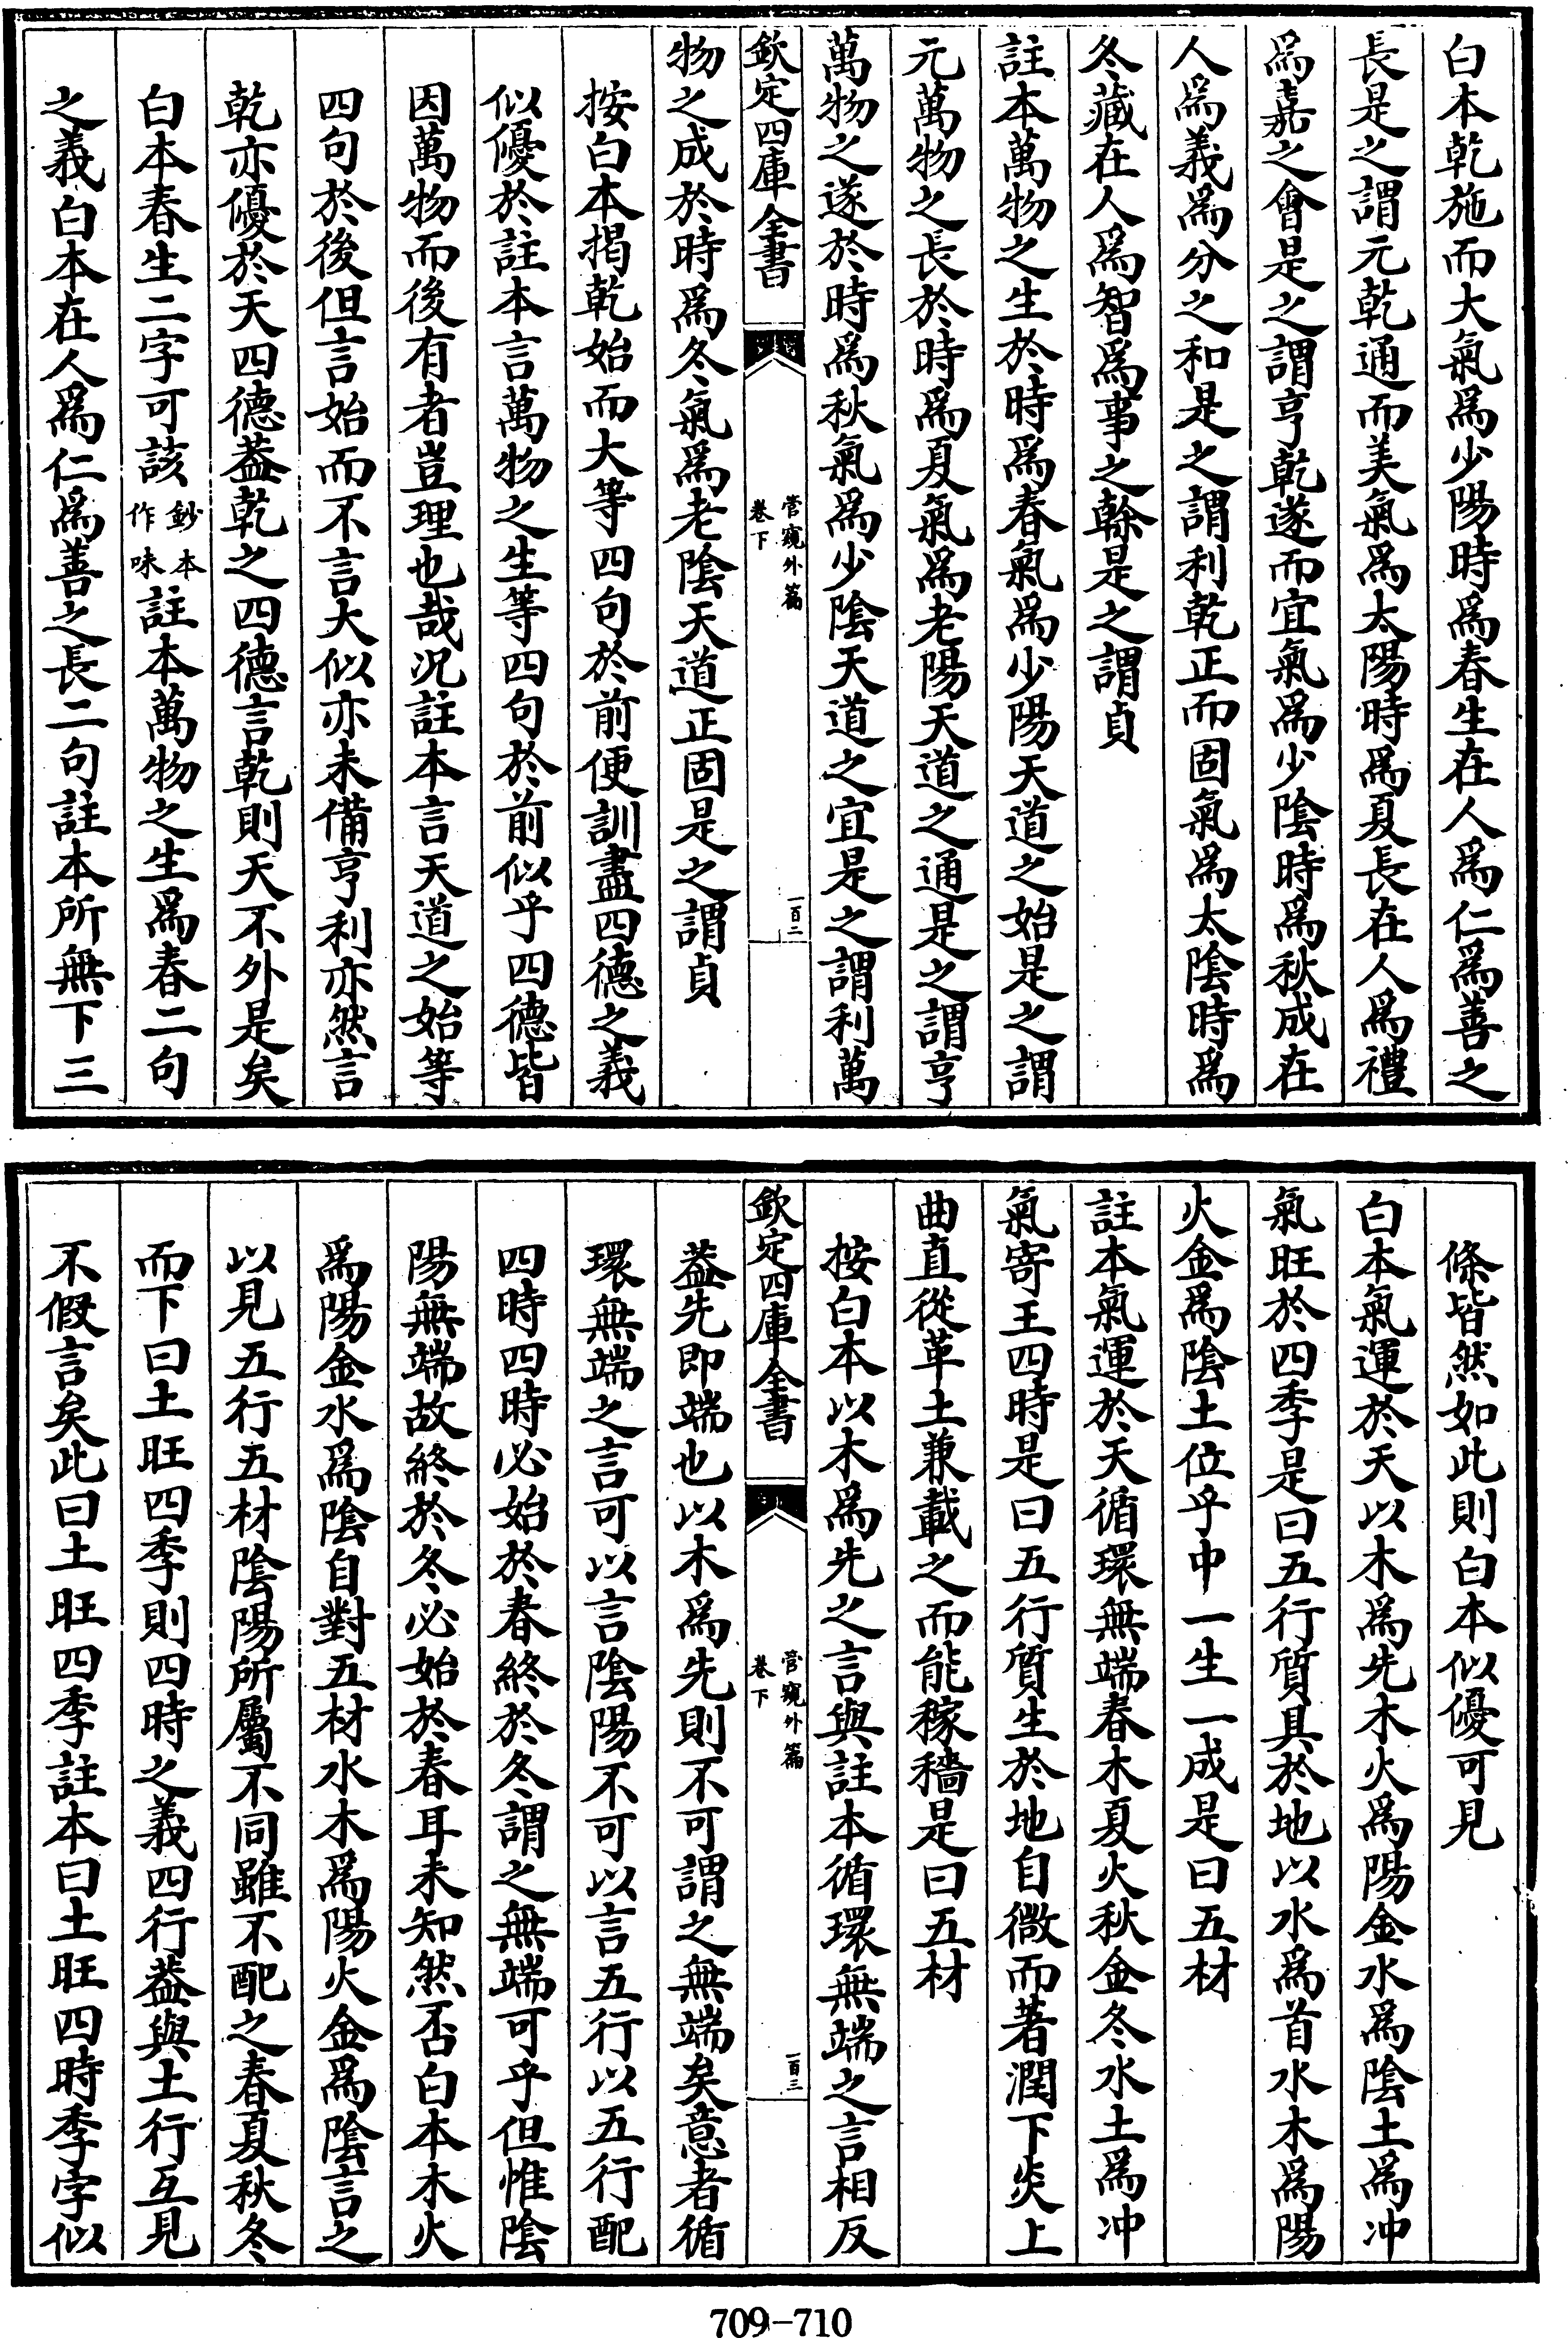 白本乾施而大氣爲少陽時爲春生在人爲仁爲善之
長是之謂元乾通而美氣爲太陽時爲夏長在人爲禮
爲嘉之會是之謂亨乾遂而宜氣爲少陰時爲秋成在
人爲義爲分之和是之謂利乾正而固氣爲太陰時爲
冬藏在人爲智爲事之榦是之謂貞
註本萬物之生於時爲春氣爲少陽天道之始是之謂
元萬物之長於時爲夏氣爲老陽天道之通是之謂亨
萬物之遂於時爲秋氣爲少陰天道之宜是之謂利萬
欽定四庫全書
管窺外篇
卷下
一百二
物之成於時爲冬氣爲老陰天道正固是之謂貞
按白本揭乾始而大等四句於前便訓盡四德之義
似優於註本言萬物之生等四句於前似乎四德皆
因萬物而後有者豈理也哉况註本言天道之始等
四句於後但言始而不言大似亦未備亨利亦然言
乾亦優於天四德葢乾之四德言乾則天不外是矣
白本春生二字可該鈔本作味註本萬物之生爲春二句
之義白本在人爲仁爲善之長二句註本所無下三
條皆然如此則白本似優可見
白本氣運於天以木爲先木火爲陽金水爲陰土爲冲
氣旺於四季是曰五行質具於地以水爲首水木爲陽
火金爲陰土位乎中一生一成是曰五材
註本氣運於天循環無端春木夏火秋金冬水土爲冲
氣寄王四時是曰五行質生於地自微而著潤下炎上
曲直從革土兼載之而能稼穡是曰五材
按白本以木爲先之言與註本循環無端之言相反
欽定四庫全書
管窺外篇
卷下
一百三
葢先即端也以木爲先則不可謂之無端矣意者循
環無端之言可以言陰陽不可以言五行以五行配
四時四時必始於春終於冬謂之無端可乎但惟陰
陽無端故終於冬必始於春耳未知然否白本木火
爲陽金水爲陰自對五材水木爲陽火金爲陰言之
以見五行五材陰陽所屬不同雖不配之春夏秋冬
而下曰土旺四季則四時之義四行葢與土行互見
不假言矣此曰土旺四季註本曰土旺四時季字似
709-710